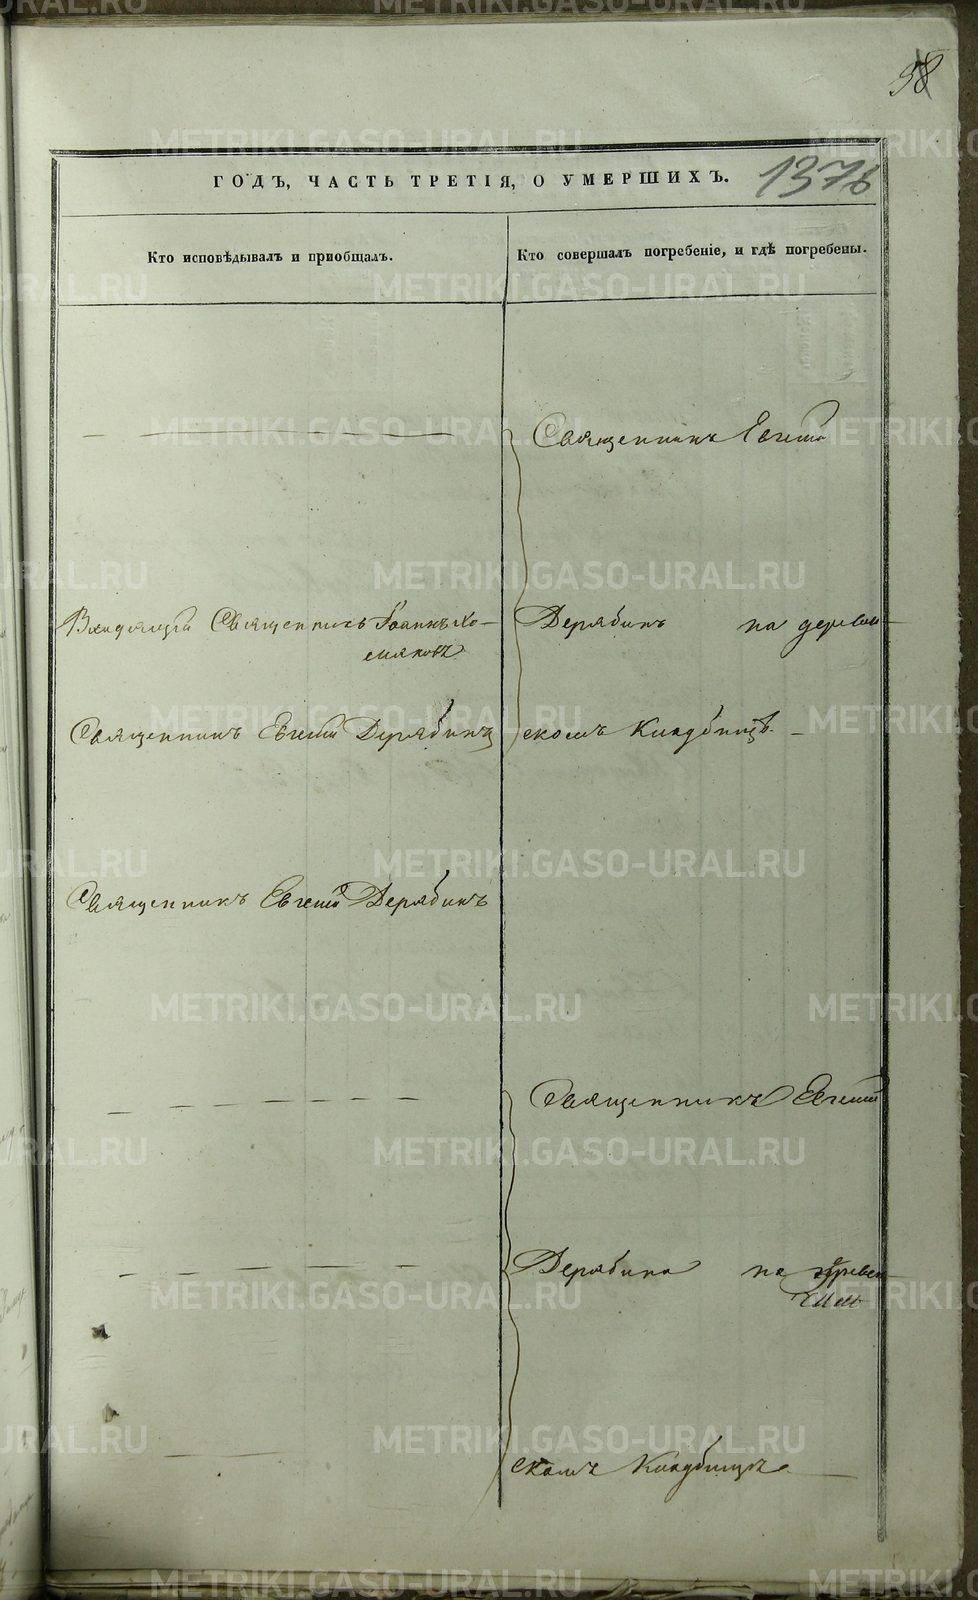 58
ГОДЪ, ЧАСТЬ ТРЕТІЯ, О УМЕРШИХЪ.
1376
Кто исповѣдывалъ и пріобщалъ.
Кто совершалъ погребеніе, и гдѣ погребены.
Священникъ Евгеній
Священникъ Іоаннъ Хо-
мяковъ
Дерябинъ на деревен-
Священникъ Евгеній Дерябинъ
скомъ Кладбищѣ.
Священникъ Евгеній Дерябинъ
Священникъ Евгеній
Дерябинъ на
скомъ Кладбищѣ.
METRIKI.GASO-URAL.RU